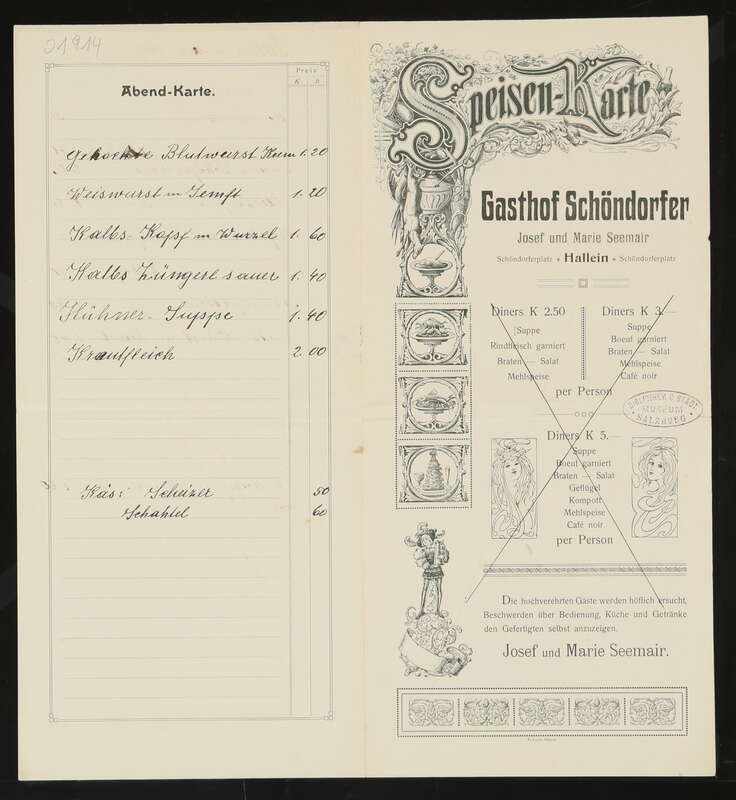 01914
Abend-Karte.
Preis
K h
Gekochte Blutwurst Kren 1.20
Weiswurst m Semft 1.20
Kalbs-Kopf m Wurzel 1.60
Kalbs Züngerl sauer 1.40
Hühner-Suppe 1.40
Krautfleich 2.00
Käs: Scheizer 50
Schahtel 60
Speisen-Karte
Gasthof Schöndorfer
Josef und Marie Seemair
Schöndorferplatz Hallein Schöndorferplatz
Diners K 2.50
Suppe
Rindfleisch garniert
Braten — Salat
Mehlspeise
Diners K 3.—
Suppe
Boeuf garniert
Braten — Salat
Mehlspeise
Café noir
per Person
BIBLIOTHEK D. STÄDT.
MUSEUM
SALZBURG
Diners K 5.—
Suppe
Boeuf garniert
Braten — Salat
Geflügel
Kompott
Mehlspeise
Café noir
per Person
Die hochverehrten Gäste werden höflich ersucht,
Beschwerden über Bedienung, Küche und Getränke
den Gefertigten selbst anzuzeigen.
Josef und Marie Seemair.